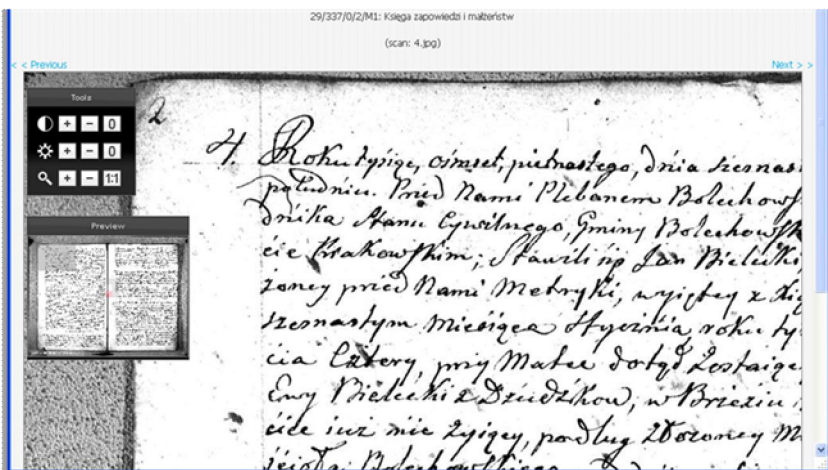 29/337/0/2/M1: Księga zapowiedzi i małżeństw
(scan: 4.jpg)
< < Previous
Next > >
Tools
+ - 0
+ - 0
+ - 1:1
Preview
2
4. Roku tysiąc, ośmset, piętnastego, Dnia szesnas
południu. Przed Nami Plebanem Bolechows
dnika Stanu Cywilnego, Gminy Bolechowsk
cie Krakowskim; Stawili się Jan Bielecki,
żoney przed Nami Metryki, wyiętey z Xię
szesnastym Miesiąca Stycznia roku ty
cia Cztery, przy Matce dotąd Zostaiące
Ewy Bielecki z Dziedzików, w Brzeziu
cicie iuż nie żyiącey, podług Złożoney M
Bolechowskiego